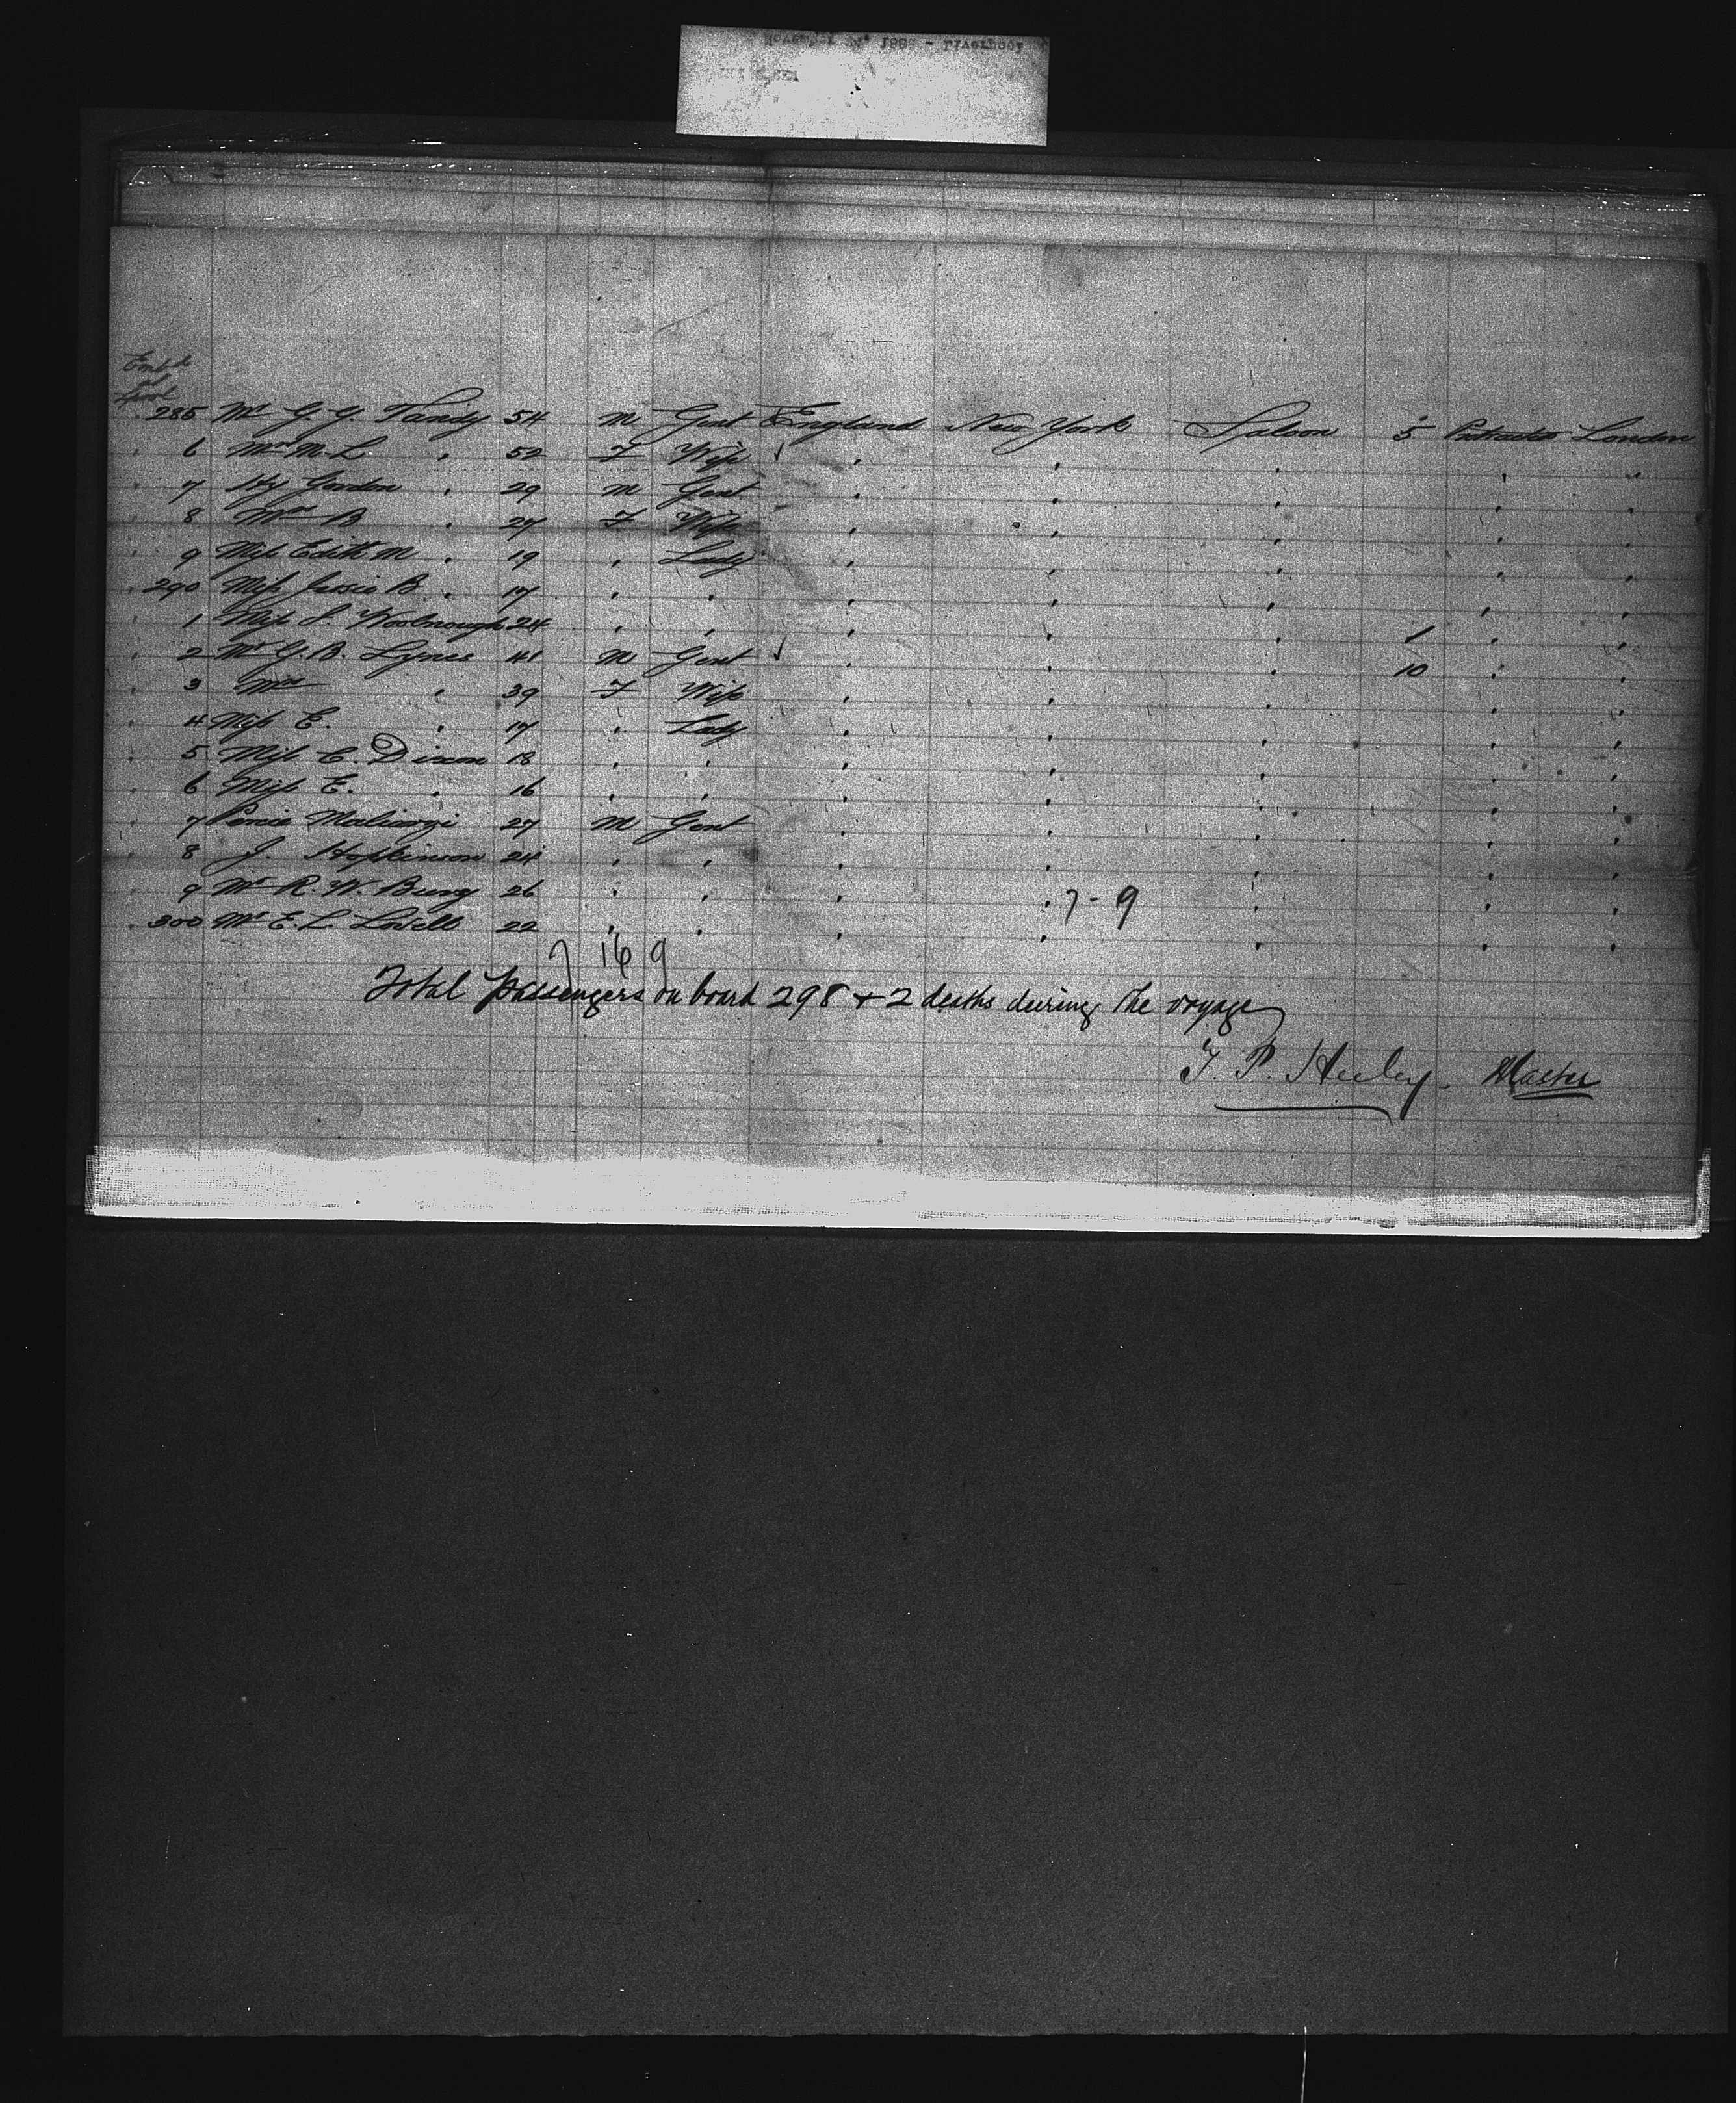 Emb'd
at
L'pool
285 Mr G. Y. Tandy 54 M Gent England New York Saloon 5 Protracted London
6 Mrs M. L " 52 F Wife " " " " "
7 Hy Gordon " 29 M Gent " " " " "
8 Mrs B " 27 F Wife " " " " "
9 Miss Edith M " 19 " Lady " " " " "
290 Miss Jessie B. " 17 " " " " " " "
1 Miss S. Woolnough 24 " " " " " 1 " "
2 Mr G. B. Lynes 41 M Gent " " " 10 " "
3 Mrs " 39 F Wife " " " " "
4 Miss E. " 17 " Lady " " " " "
5 Miss C. Dixon 18 " " " " " " "
6 Miss E. " 16 " " " " " " "
7 27 M Gent " " " " "
8 J. Hopkinson 24 " " " " " " "
9 Mr R. W. Burg 26 " " " " 7-9 " " "
300 Mr E. L. Lovell 22 " " " " " " "
7 16 9
Total passengers on board 298 + 2 deaths during the voyage
T. P. Heeley. Master